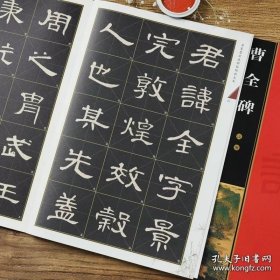 君諱全字景
完敦煌效穀
人也其先蓋
周之胄武王
曹全碑
孔夫子旧书网